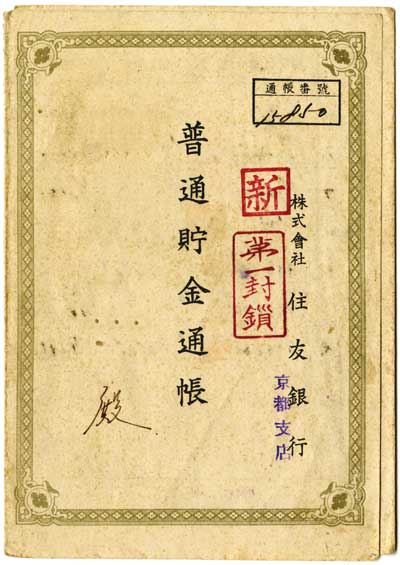 通帳番號
15850
株式會社 住友銀行
京都支店
新
第一封鎖
普通貯金通帳
殿